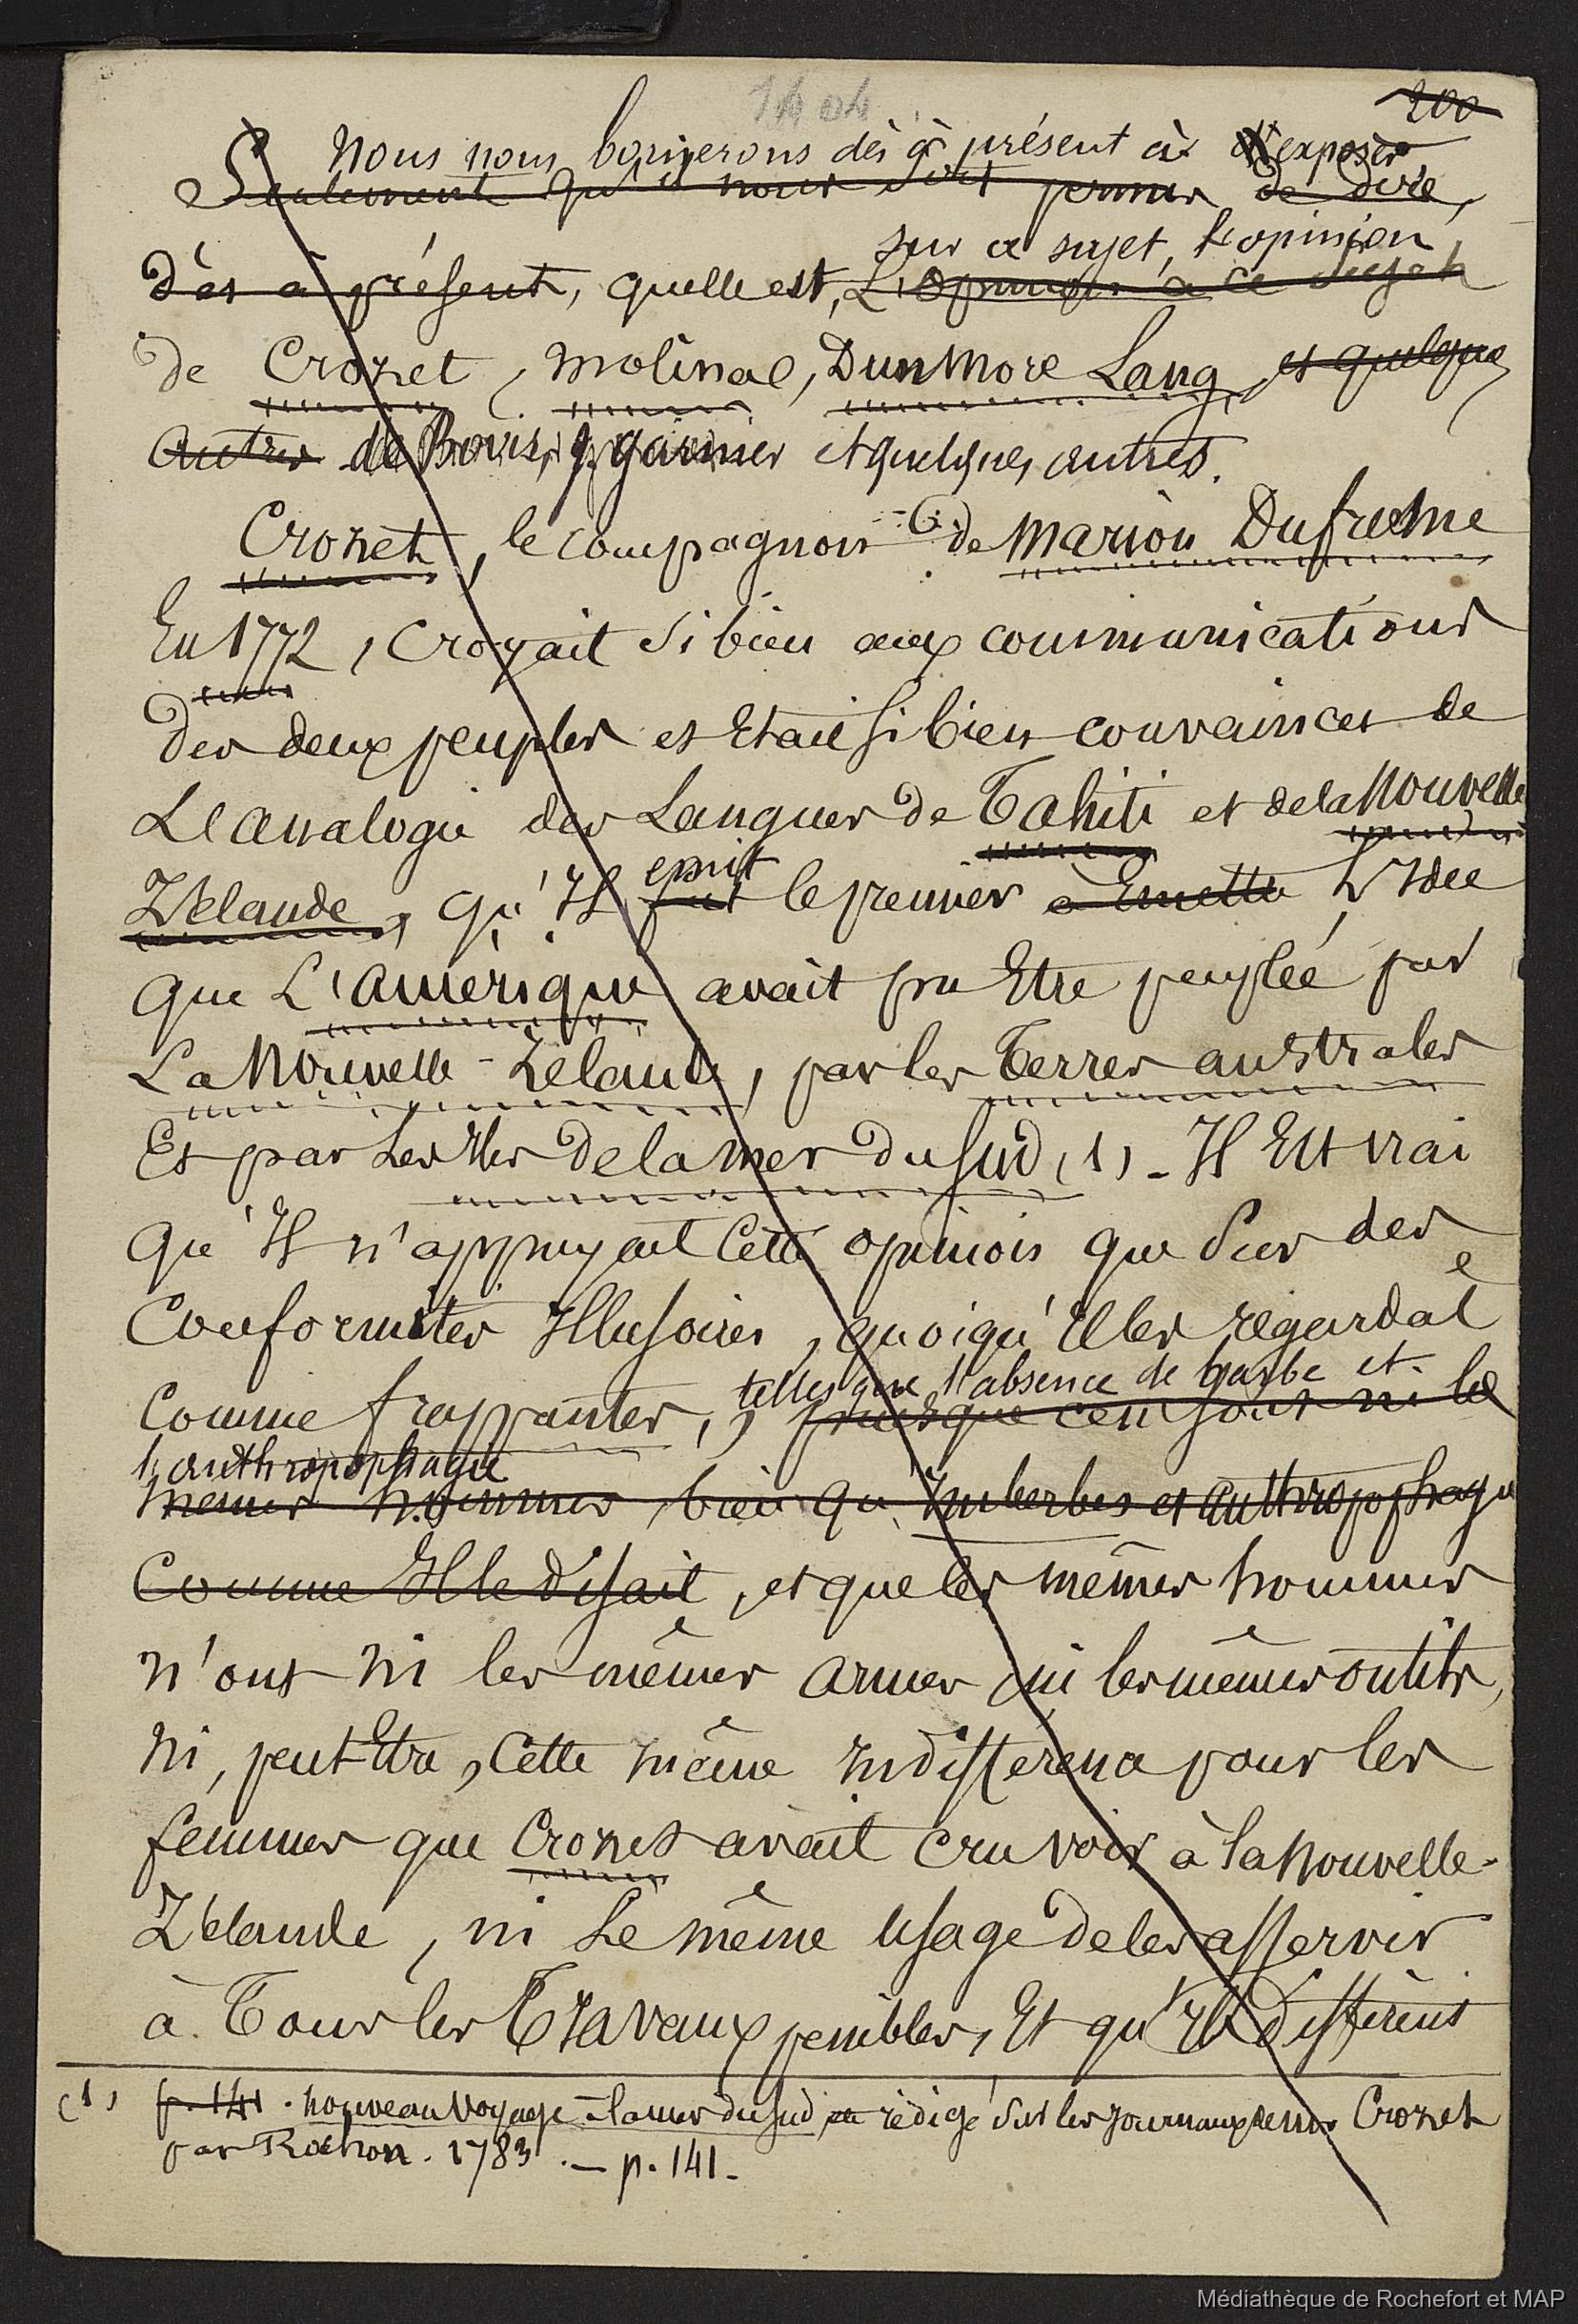 1404
200
Nous nous bornerons dès à présent à exposer
Seulement qu'il nous soit permis de dire,
sur ce sujet, l'opinion
dès à présent, quelle est, L'opinion à ce sujet
de Crozet, Molina, Dunmore Lang, et quelques
autres de Bovis, J. Garnier et quelques autres.
Crozet, le compagnon de Marion Dufresne
En 1772, croyait si bien aux communications
des deux peuples et Etait si bien convaincu de
L'analogie des Langues de Tahiti et de la Nouvelle
émit
Zélande, qu'Il fut le premier à Emettre L'Idée
que L'amérique avait pu Etre peuplée par
La Nouvelle-Zélande, par les Terres australes
Et par Les Iles de la mer du Sud (1) - Il Est vrai
qu'Il n'appuyait cette opinion que sur des
Conformités Illusoires, quoiqu'Il les regardat
telles que l'absence de barbe et
Comme frappantes, puisque ce n'sont ni les
l'anthropophagie
mêmes hommes, bien qu'Imberbes et anthropophages
Comme Il le disait, et que les mêmes hommes
n'ont ni les mêmes armes, ni les mêmes outils,
ni, peut-Etre, Cette même Indifférence pour les
femmes que Crozet avait cru voir à la Nouvelle-
Zélande, ni Le même usage de les asservir
à Tous les Travaux penibles, Et qu'Ils différens
(1) p. 141. nouveau voyage à la mer du Sud, rédigé sur les journaux de Mr Crozet
par Rochon. 1783. — p. 141.
Médiathèque de Rochefort et MAP